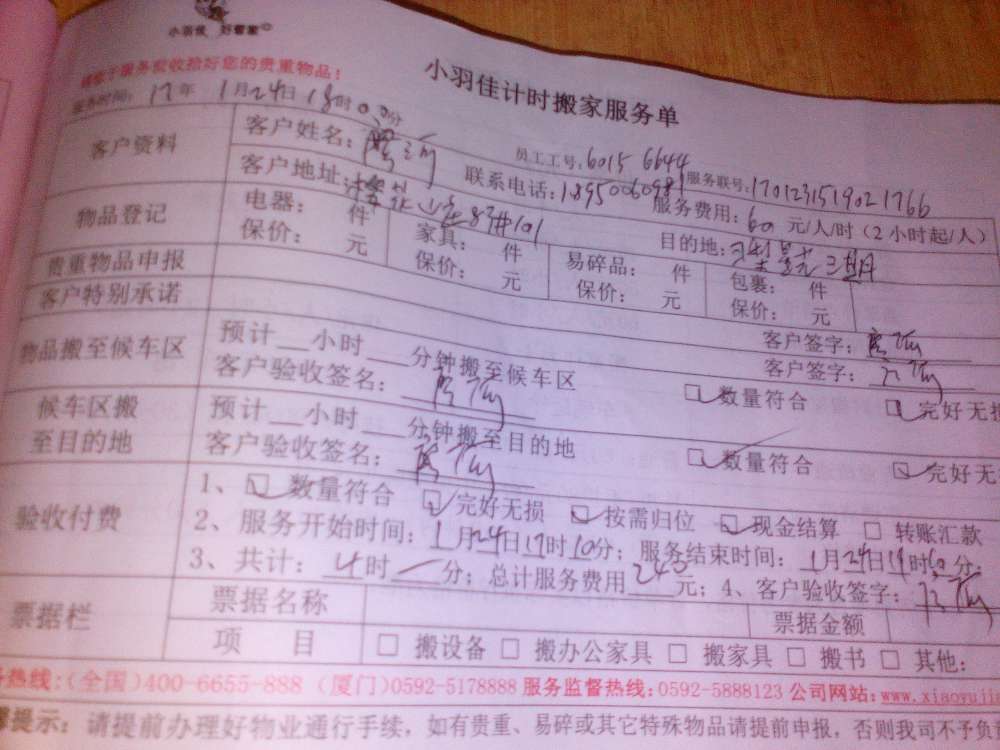 小羽佳 好管家
小羽佳计时搬家服务单
请您于服务前收拾好您的贵重物品！
服务时间：17年1月24日18时00分
员工工号：6015 6644
服务联号：1701231519021766
客户资料
客户姓名：
联系电话：18950060981
服务费用：60元/人/时（2小时起/人）
客户地址：莲花山庄83#101
目的地：
物品登记
电器： 件 家具： 件 易碎品： 件 包裹： 件
保价： 元 保价： 元 保价： 元 保价： 元
贵重物品申报
客户签字：
客户特别承诺
客户签字：
物品搬至候车区
预计__小时__分钟搬至候车区
客户验收签名：
数量符合 完好无损
候车区搬至目的地
预计__小时__分钟搬至目的地
客户验收签名：
数量符合 完好无
验收付费
1、 数量符合 完好无损 按需归位 现金结算 □ 转账汇款
2、服务开始时间：1月24日17时10分；服务结束时间：1月24日19时10分；
3、共计：4时一分；总计服务费用240元；4、客户验收签字：
票据栏
票据名称 票据金额
项 目 □ 搬设备 □ 搬办公家具 □ 搬家具 □ 搬书 □ 其他：
务热线：（全国）400-6655-888（厦门）0592-5178888 服务监督热线：0592-5888123 公司网站：www.xiaoyuji
馨提示：请提前办理好物业通行手续，如有贵重、易碎或其它特殊物品请提前申报，否则我司不予负